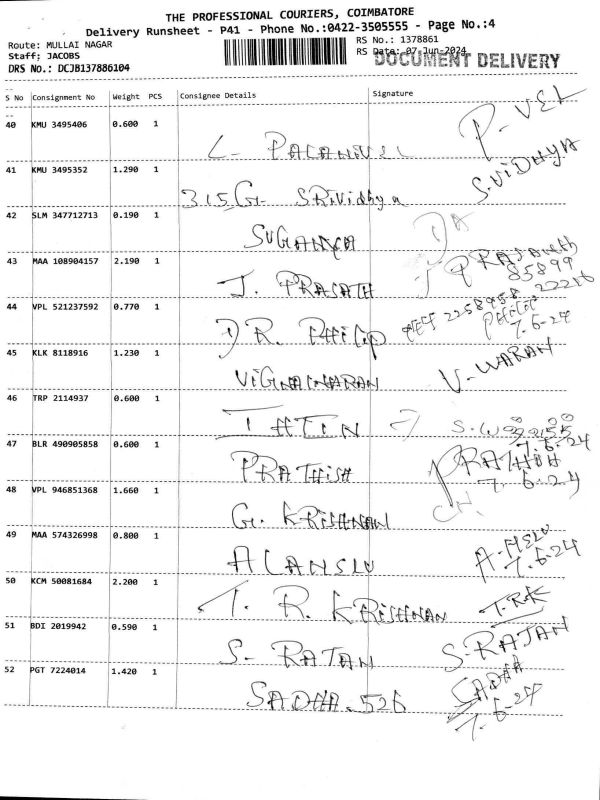 THE PROFESSIONAL COURIERS, COIMBATORE
Delivery Runsheet - P41 - Phone No.:0422-3505555 - Page No.:4
Route: MULLAI NAGAR
RS No.: 1378861
Staff; JACOBS
RS Date: 07-Jun-2024
DOCUMENT DELIVERY
DRS No.: DCJB137886104
S No Consignment No Weight PCS Consignee Details Signature
40 KMU 3495406 0.600 1
L- PALANIVEL P-VEL
41 KMU 3495352 1.290 1
315G. SRividhya S.ViDHYA
42 SLM 347712713 0.190 1
SUGANYA
43 MAA 108904157 2.190 1
J. PRASATH
85899
44 VPL 521237592 0.770 1
DR. PHILIP 2258958 22216
7.6-24
45 KLK 8118916 1.230 1
ViGNAINARAN V-WARAN
46 TRP 2114937 0.600 1
47 BLR 490905858 0.600 1
7.6-24
PRATHiSH PRATHISH
7.6-24
48 VPL 946851368 1.660 1
G. KRISHNAN
49 MAA 574326998 0.800 1
7.6-24
50 KCM 50081684 2.200 1
T. R. KRISHNAN T.RK
51 BDI 2019942 0.590 1
S- RAJAN S-RAJAN
52 PGT 7224014 1.420 1
SADHA.526 SADHA
7.6-24